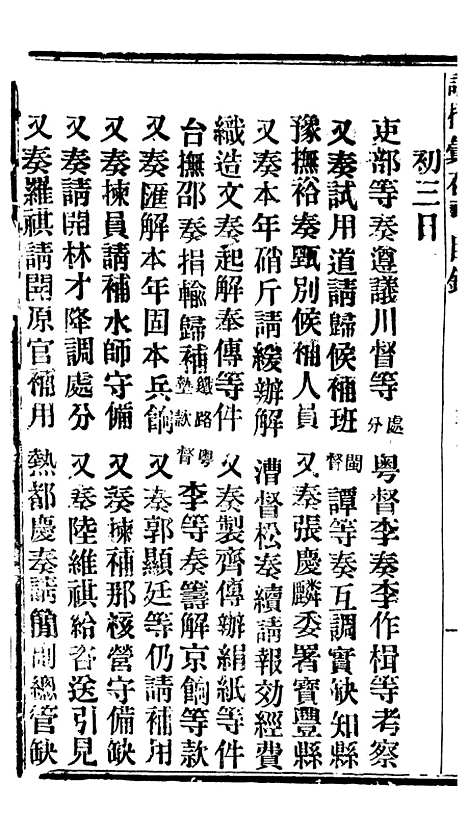 初三日
吏部等奏遵議川督等處分 粵督李奏李作楫等考察
又奏試用道請歸候補班 閩督譚等奏互調實缺知縣
豫撫裕奏甄別候補人員 又奏張慶麟委署寶豐縣
又奏本年硝斤請緩辦解 漕督松奏續請報効經費
織造文奏起解奉傳等件 又奏製齊傳辦絹紙等件
台撫邵奏捐輸歸補鐵路墊款 粵督李等奏籌解京餉等款
又奏匯解本年固本兵餉 又奏郭顯廷等仍請補用
又奏揀員請補水師守備 又奏揀補那扶營守備缺
又奏請開林才降調處分 又奏陸維祺給咨送引見
又奏羅祺請開原官補用 熱都慶奏請簡副總管缺